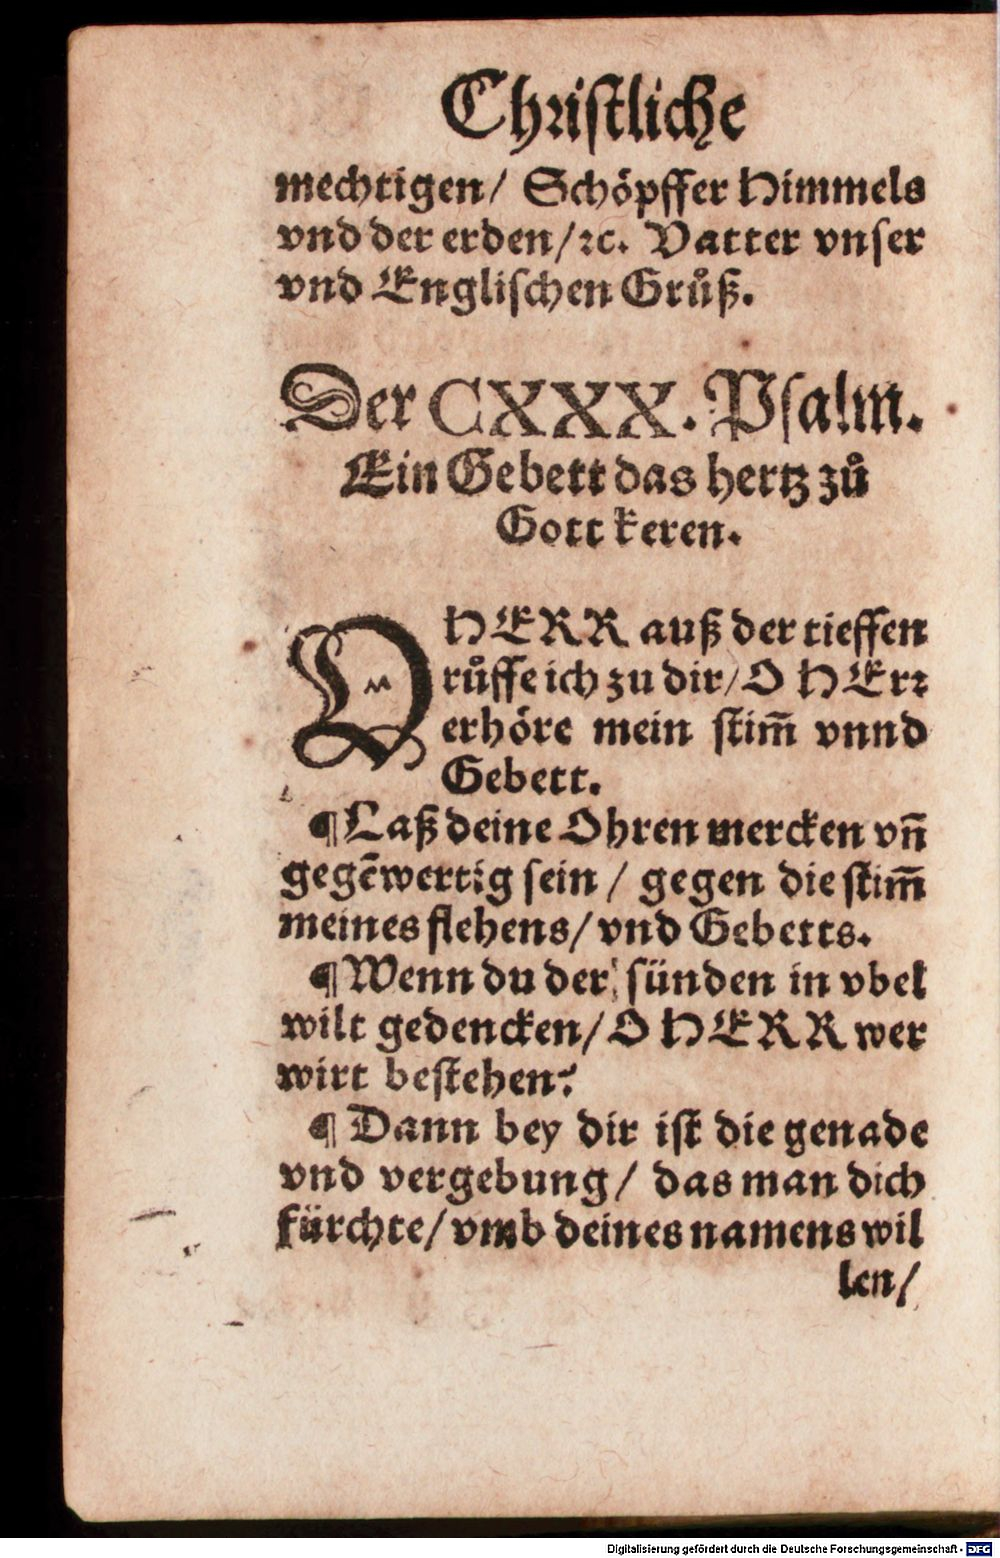 Chriſtliche
mechtigen/ Schöpffer Himmels
vnd der erden/ꝛc. Vatter vnser
vnd Engliſchen Grůß.
Der CXXX. Pſalm.
Ein Gebett das hertz zů
Gott keren.
O HERR auß der tieffen
růffe ich zu dir/ O HErꝛ
erhöre mein ſtim̃ vnnd
Gebett.
¶ Laß deine Ohren mercken vñ
gegẽwertig ſein / gegen die ſtim̃
meines flehens/ vnd Gebetts.
¶ Wenn du der ſünden in vbel
wilt gedencken/ O HERR wer
wirt beſtehen?
¶ Dann bey dir iſt die genade
vnd vergebung/ das man dich
fürchte/ vmb deines namens wil
len/
Digitalisierung gefördert durch die Deutsche Forschungsgemeinschaft - DFG